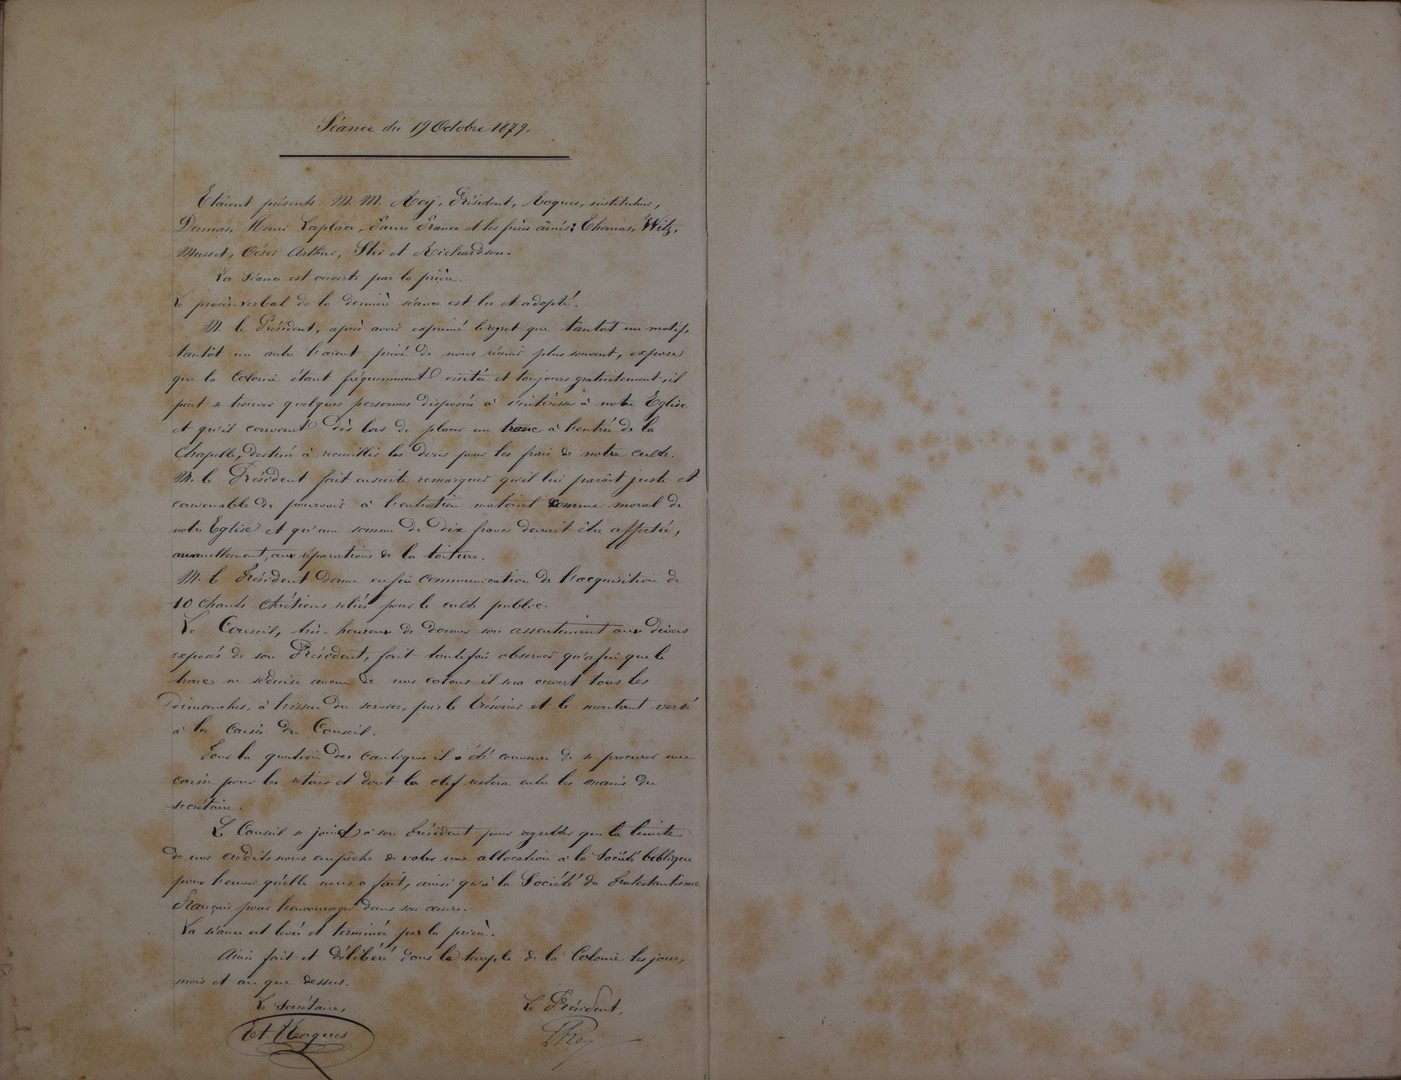 Séance du 19 Octobre 1879.
Etaient présents M. M. Roy, Président, Roques, instituteur,
Dumas, Henri Laplace, Faure France et les frères aînés: Thomas, Witz,
Massot, César Arthur, et Richardson.
La séance est ouverte par la prière.
Le procès-verbal de la dernière séance est lu et adopté.
M. le Président, après avoir exprimé le regret que tantôt un motif,
tantôt un autre l'aient privé de nous réunir plus souvent, expose
que la Colonie étant fréquemment visitée et toujours gratuitement il
peut se trouver quelques personnes disposées à s'intéresser à notre Eglise
et qu'il convient dès lors de placer un tronc à l'entrée de la
Chapelle, destiné à recueillir les dons pour les frais de notre culte.
M. le Président fait ensuite remarquer qu'il lui paraît juste et
convenable de pourvoir à l'entretien matériel comme moral de
notre Eglise et qu'une somme de Dix francs devrait être affectée,
annuellement, aux réparations de la toiture.
M. le Président donne enfin communication de l'acquisition de
10 chants chrétiens reliés pour le culte public.
Le Conseil, très-heureux de donner son assentiment aux divers
exposés de son Président, fait toutefois observer qu'afin que le
tronc ne séduise aucun de nos colons il sera ouvert tous les
dimanches, à l'issue du service, par le trésorier et le montant versé
à la caisse du Conseil.
Pour la question des cantiques il a été convenu de se procurer une
caisse pour les et dont la clef restera entre les mains du
secrétaire.
Le Conseil se joint à son Président pour regretter que la limite
de nos crédits nous empêche de voter une allocation à la Société biblique
pour l'envoi qu'elle nous a fait, ainsi qu'à la Société du Protestantisme
français pour l'encourager dans son œuvre.
La séance est levée et terminée par la prière.
Ainsi fait et délibéré dans le temple de la Colonie les jour,
mois et an que dessus.
Le Secrétaire, Le Président,
Et. Roques Roy